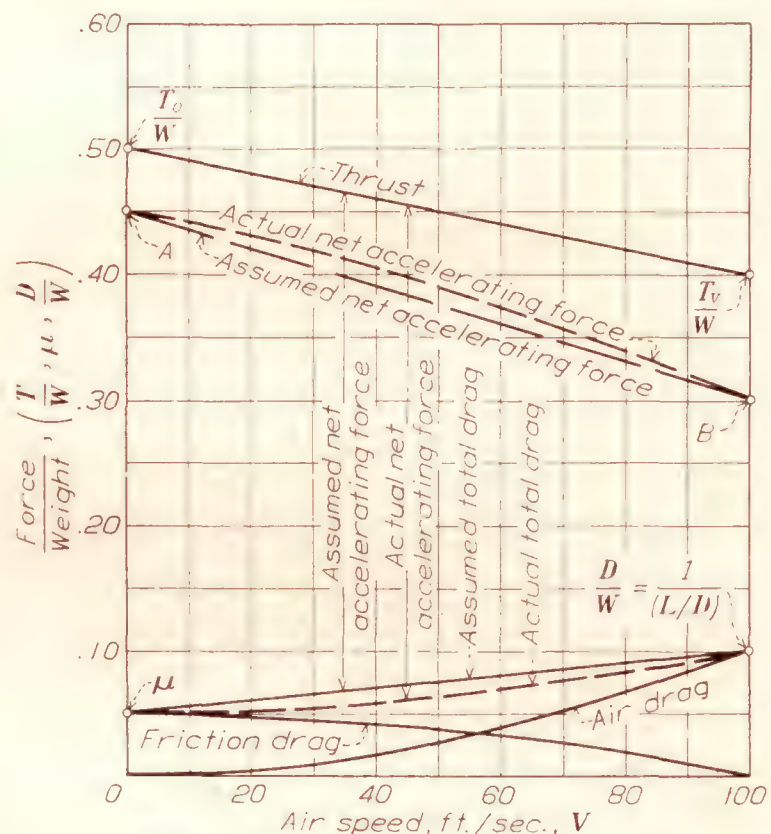 .60
.50
.40
.30
.20
.10
0
T₀/W
Thrust
A
Actual net accelerating force
Assumed net accelerating force
Tᵥ/W
B
Force/Weight, (T/W, μ, D/W)
Assumed net
accelerating force
Actual net
accelerating force
Assumed total drag
Actual total drag
D/W = 1/(L/D)
μ
Friction drag
Air drag
0 20 40 60 80 100
Air speed, ft./sec., V